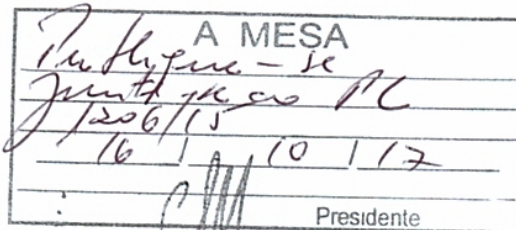 A MESA
Publique-se
Junte-se ao PL
1206/15
16 / 10 / 17
Presidente